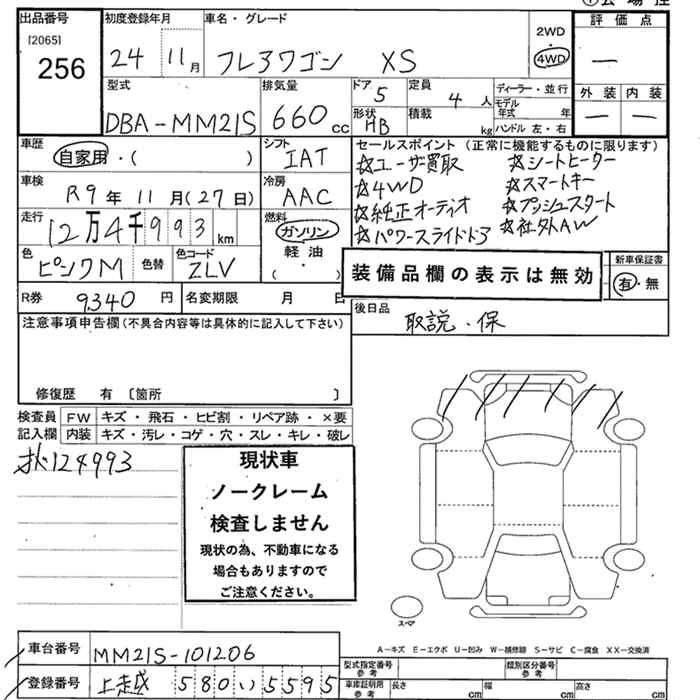 出品番号
[2065]
256
初度登録年月
24 11月
車名・グレード
フレアワゴン XS
2WD
4WD
評価点
ー
外装 内装
ー ー
型式
DBA-MM21S
排気量
660cc
ドア 5
形状 HB
定員 4人
積載 kg
ディーラー・並行
モデル年式 年
ハンドル 左・右
車歴
自家用・( )
シフト
IAT
セールスポイント(正常に機能するものに限ります)
☆ユーザー買取 ☆シートヒーター
☆4WD ☆スマートキー
☆純正オーディオ ☆プッシュスタート
☆パワースライドドア ☆社外AW
車検
R9年11月(27日)
冷房
AAC
走行
12万4千993km
燃料
ガソリン
軽油
( ・ )
色
ピンクM
色替
色コード
ZLV
装備品欄の表示は無効
新車保証書
有・無
R券 9340円
名変期限 月 日
後日品
取説・保
注意事項申告欄(不具合内容等は具体的に記入して下さい)
修復歴 有 〔箇所 〕
検査員記入欄
FW キズ・飛石・ヒビ割・リペア跡・×要
内装 キズ・汚レ・コゲ・穴・スレ・キレ・破レ
124993
現状車
ノークレーム
検査しません
現状の為、不動車になる
場合もありますので
ご注意ください。
スペア
A-キズ E-エクボ U-凹み W-補修跡 S-サビ C-腐食 XX-交換済
車台番号
MM21S-101206
登録番号
上越 580 い 5595
型式指定番号 参考
類別区分番号 参考
車庫証明用 参考
長さ cm 幅 cm 高さ cm